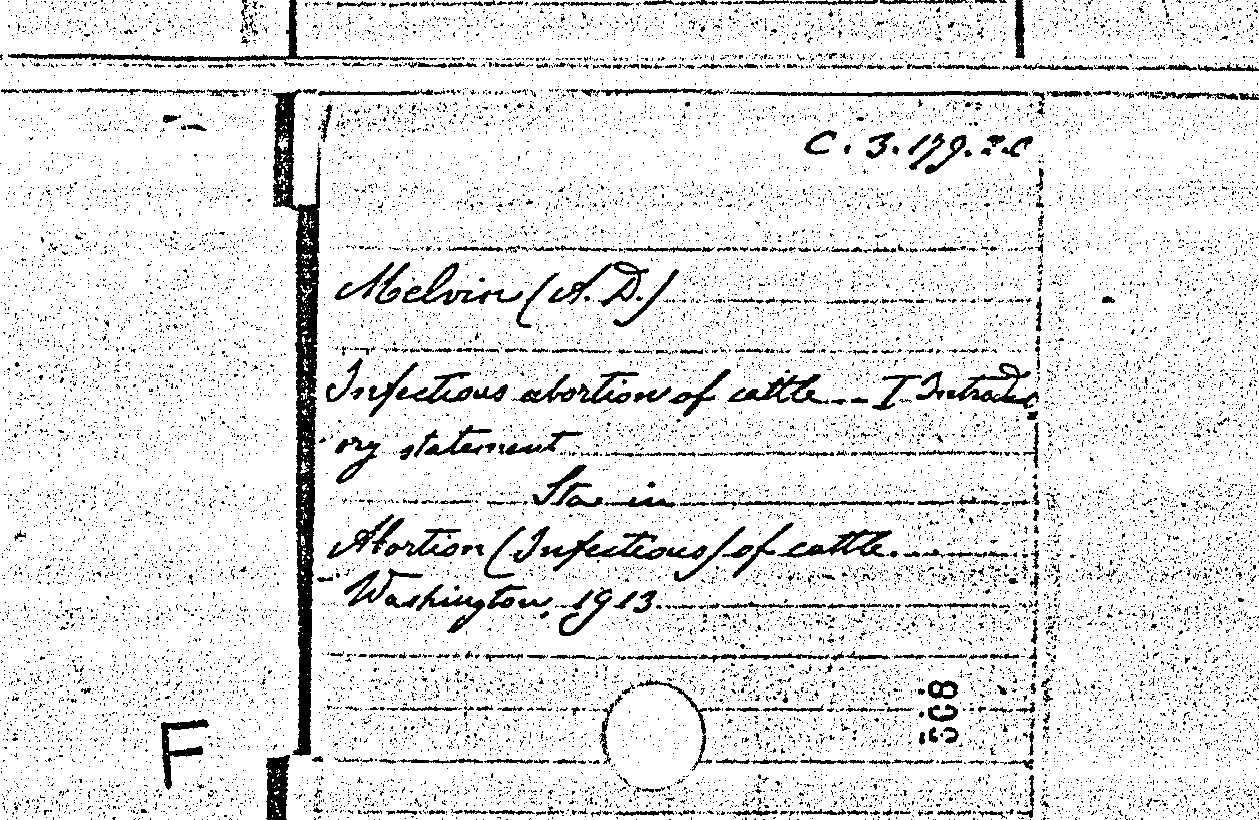 C. 3. 179.
Melvin (A. D.)
Infectious abortion of cattle -- I Introduct
ory statement
Sta in
Abortion (Infectious) of cattle.
Washington, 1913.
F